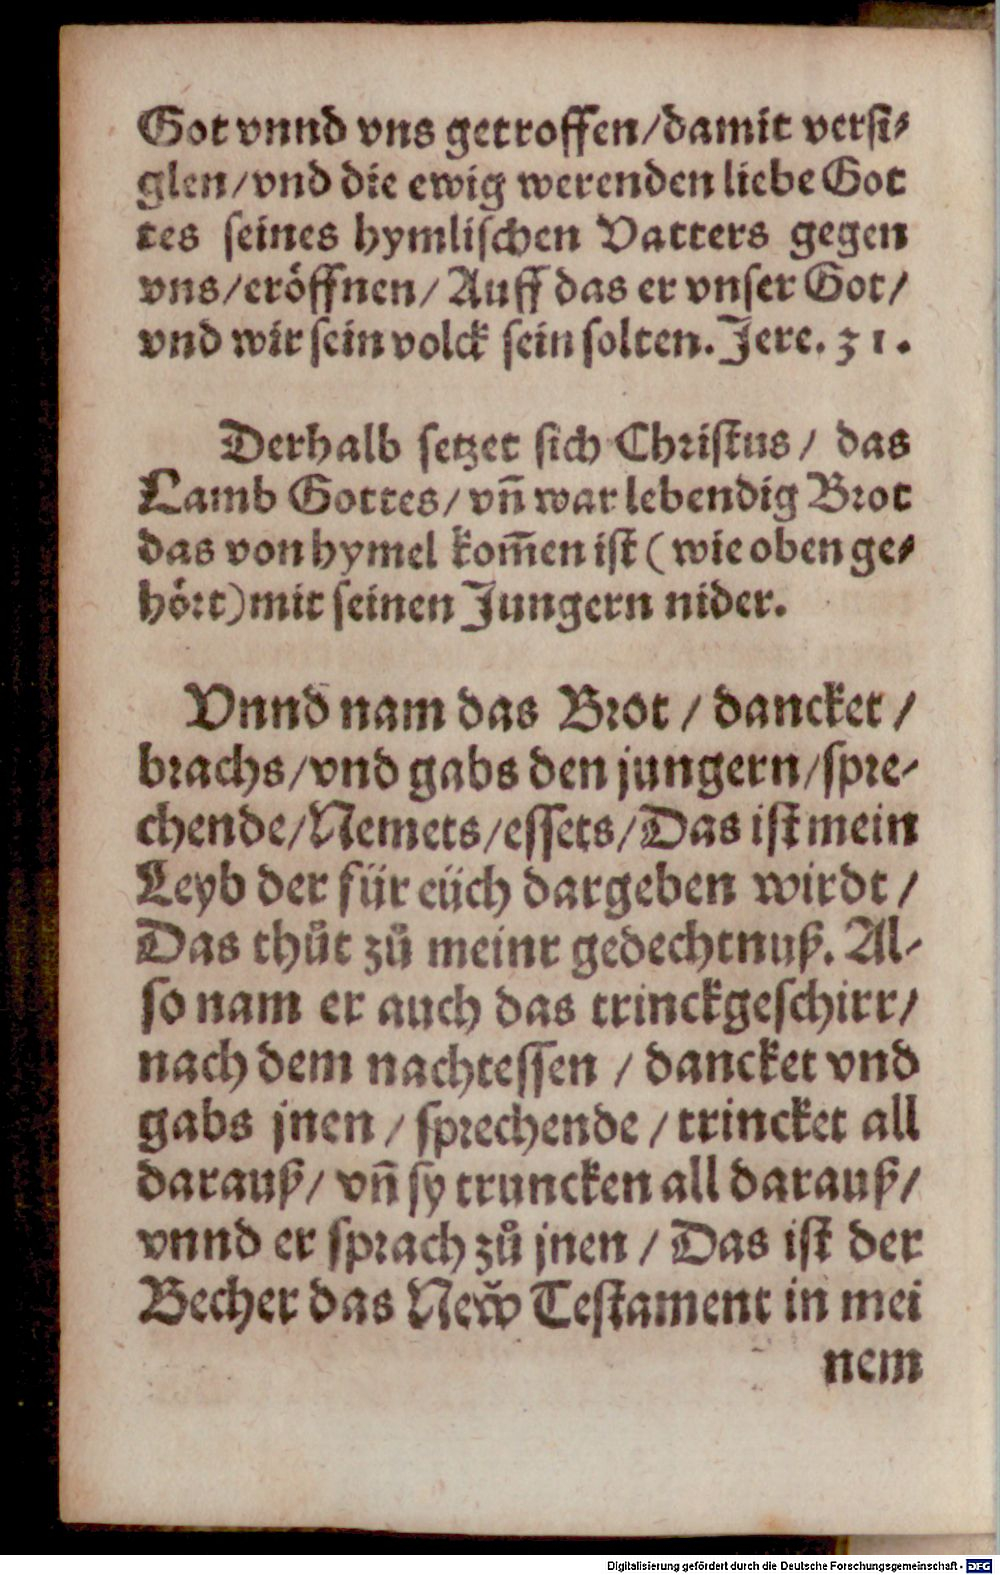 Got vnnd vns getroffen/damit versi⸗
glen/vnd die ewig werenden liebe Got
tes seines hymlischen Vatters gegen
vns/eröffnen/Auff das er vnser Got/
vnd wir sein volck sein solten. Jere. 31.
Derhalb setzet sich Christus/ das
Lamb Gottes/vñ war lebendig Brot
das von hymel kom̃en ist (wie oben ge⸗
hört)mit seinen Jungern nider.
Vnnd nam das Brot / dancket /
brachs/vnd gabs den jungern/spre⸗
chende/Nemets/essets/Das ist mein
Leyb der für eüch dargeben wirdt /
Das thůt zů meinr gedechtnuß. Al⸗
so nam er auch das trinckgeschirr/
nach dem nachtessen / dancket vnd
gabs jnen / sprechende / trincket all
darauß/ vñ sy truncken all darauß/
vnnd er sprach zů jnen / Das ist der
Becher das New̌ Testament in mei
nem
Digitalisierung gefördert durch die Deutsche Forschungsgemeinschaft - DFG